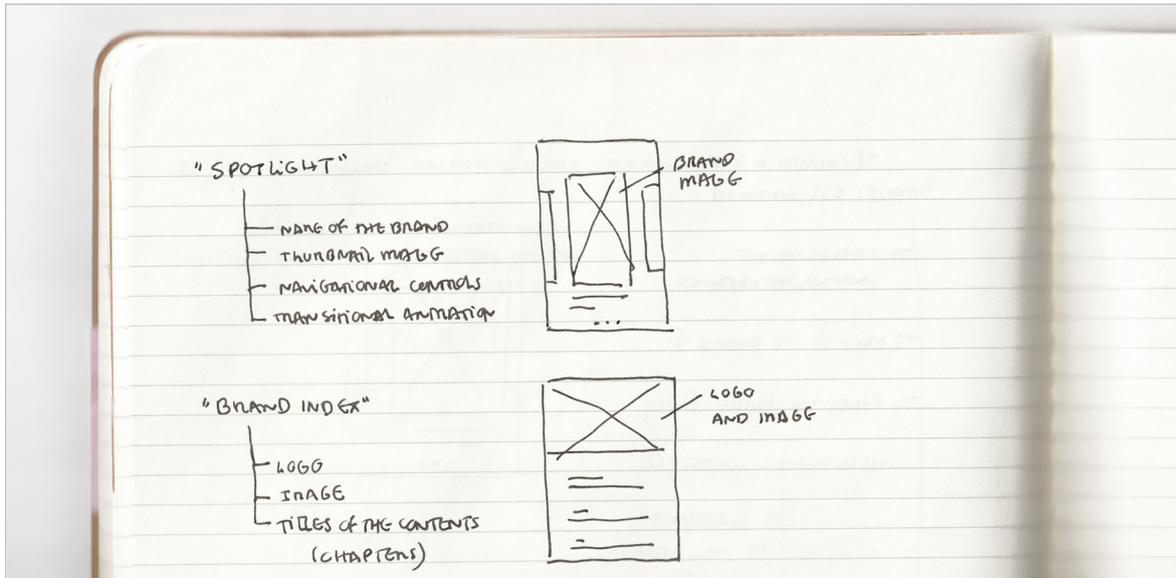 "SPOTLIGHT"
NAME OF THE BRAND
THUMBNAIL IMAGE
NAVIGATIONAL CONTROLS
TRANSITIONAL ANIMATION
BRAND
IMAGE
"BRAND INDEX"
LOGO
IMAGE
TITLES OF THE CONTENTS
(CHAPTERS)
LOGO
AND IMAGE